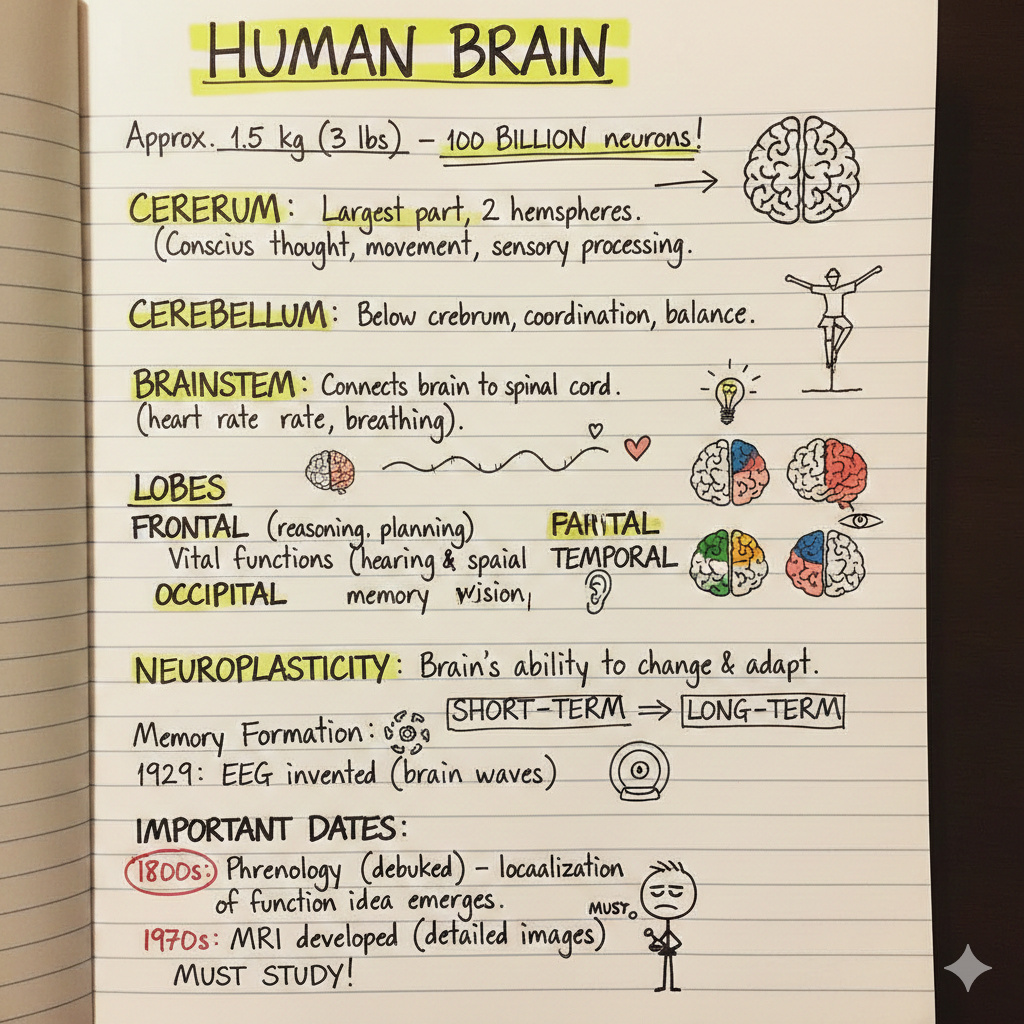 HUMAN BRAIN
Approx. 1.5 kg (3 lbs) – 100 BILLION neurons!
CERERUM: Largest part, 2 hemspheres.
(Conscius thought, movement, sensory processing.
CEREBELLUM: Below crebrum, coordination, balance.
BRAINSTEM: Connects brain to spinal cord.
(heart rate rate, breathing).
LOBES
FRONTAL (reasoning. planning)
Vital functions (hearing & spaial TEMPORAL
OCCIPITAL memory
NEUROPLASTICITY: Brain's ability to change & adapt.
SHORT-TERM ⇒ LONG-TERM
Memory Formation:
1929: EEG invented (brain waves)
IMPORTANT DATES:
1800s: Phrenology (debuked) – locaalization
of function idea emerges.
MUST.
1970s: MRI developed (detailed images)
MUST STUDY!